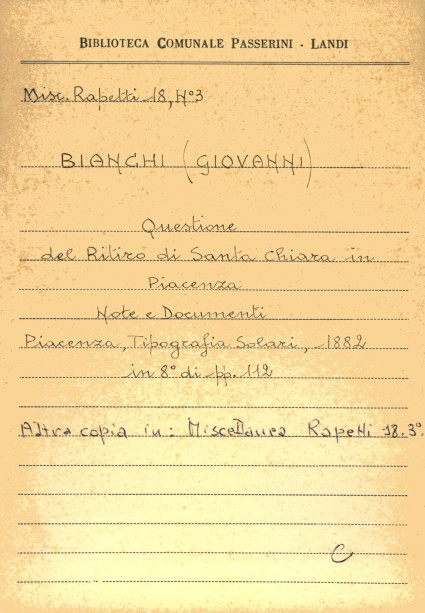 BIBLIOTECA COMUNALE PASSERINI - LANDI
Misc. Rapetti 18, N°3
BIANCHI (GIOVANNI)
Questione
del Ritiro di Santa Chiara in
Piacenza
Note e Documenti
Piacenza, Tipografia Solari, 1882
in 8° di pp. 112
Altra copia in: Miscellanea Rapetti 18.3°.
C